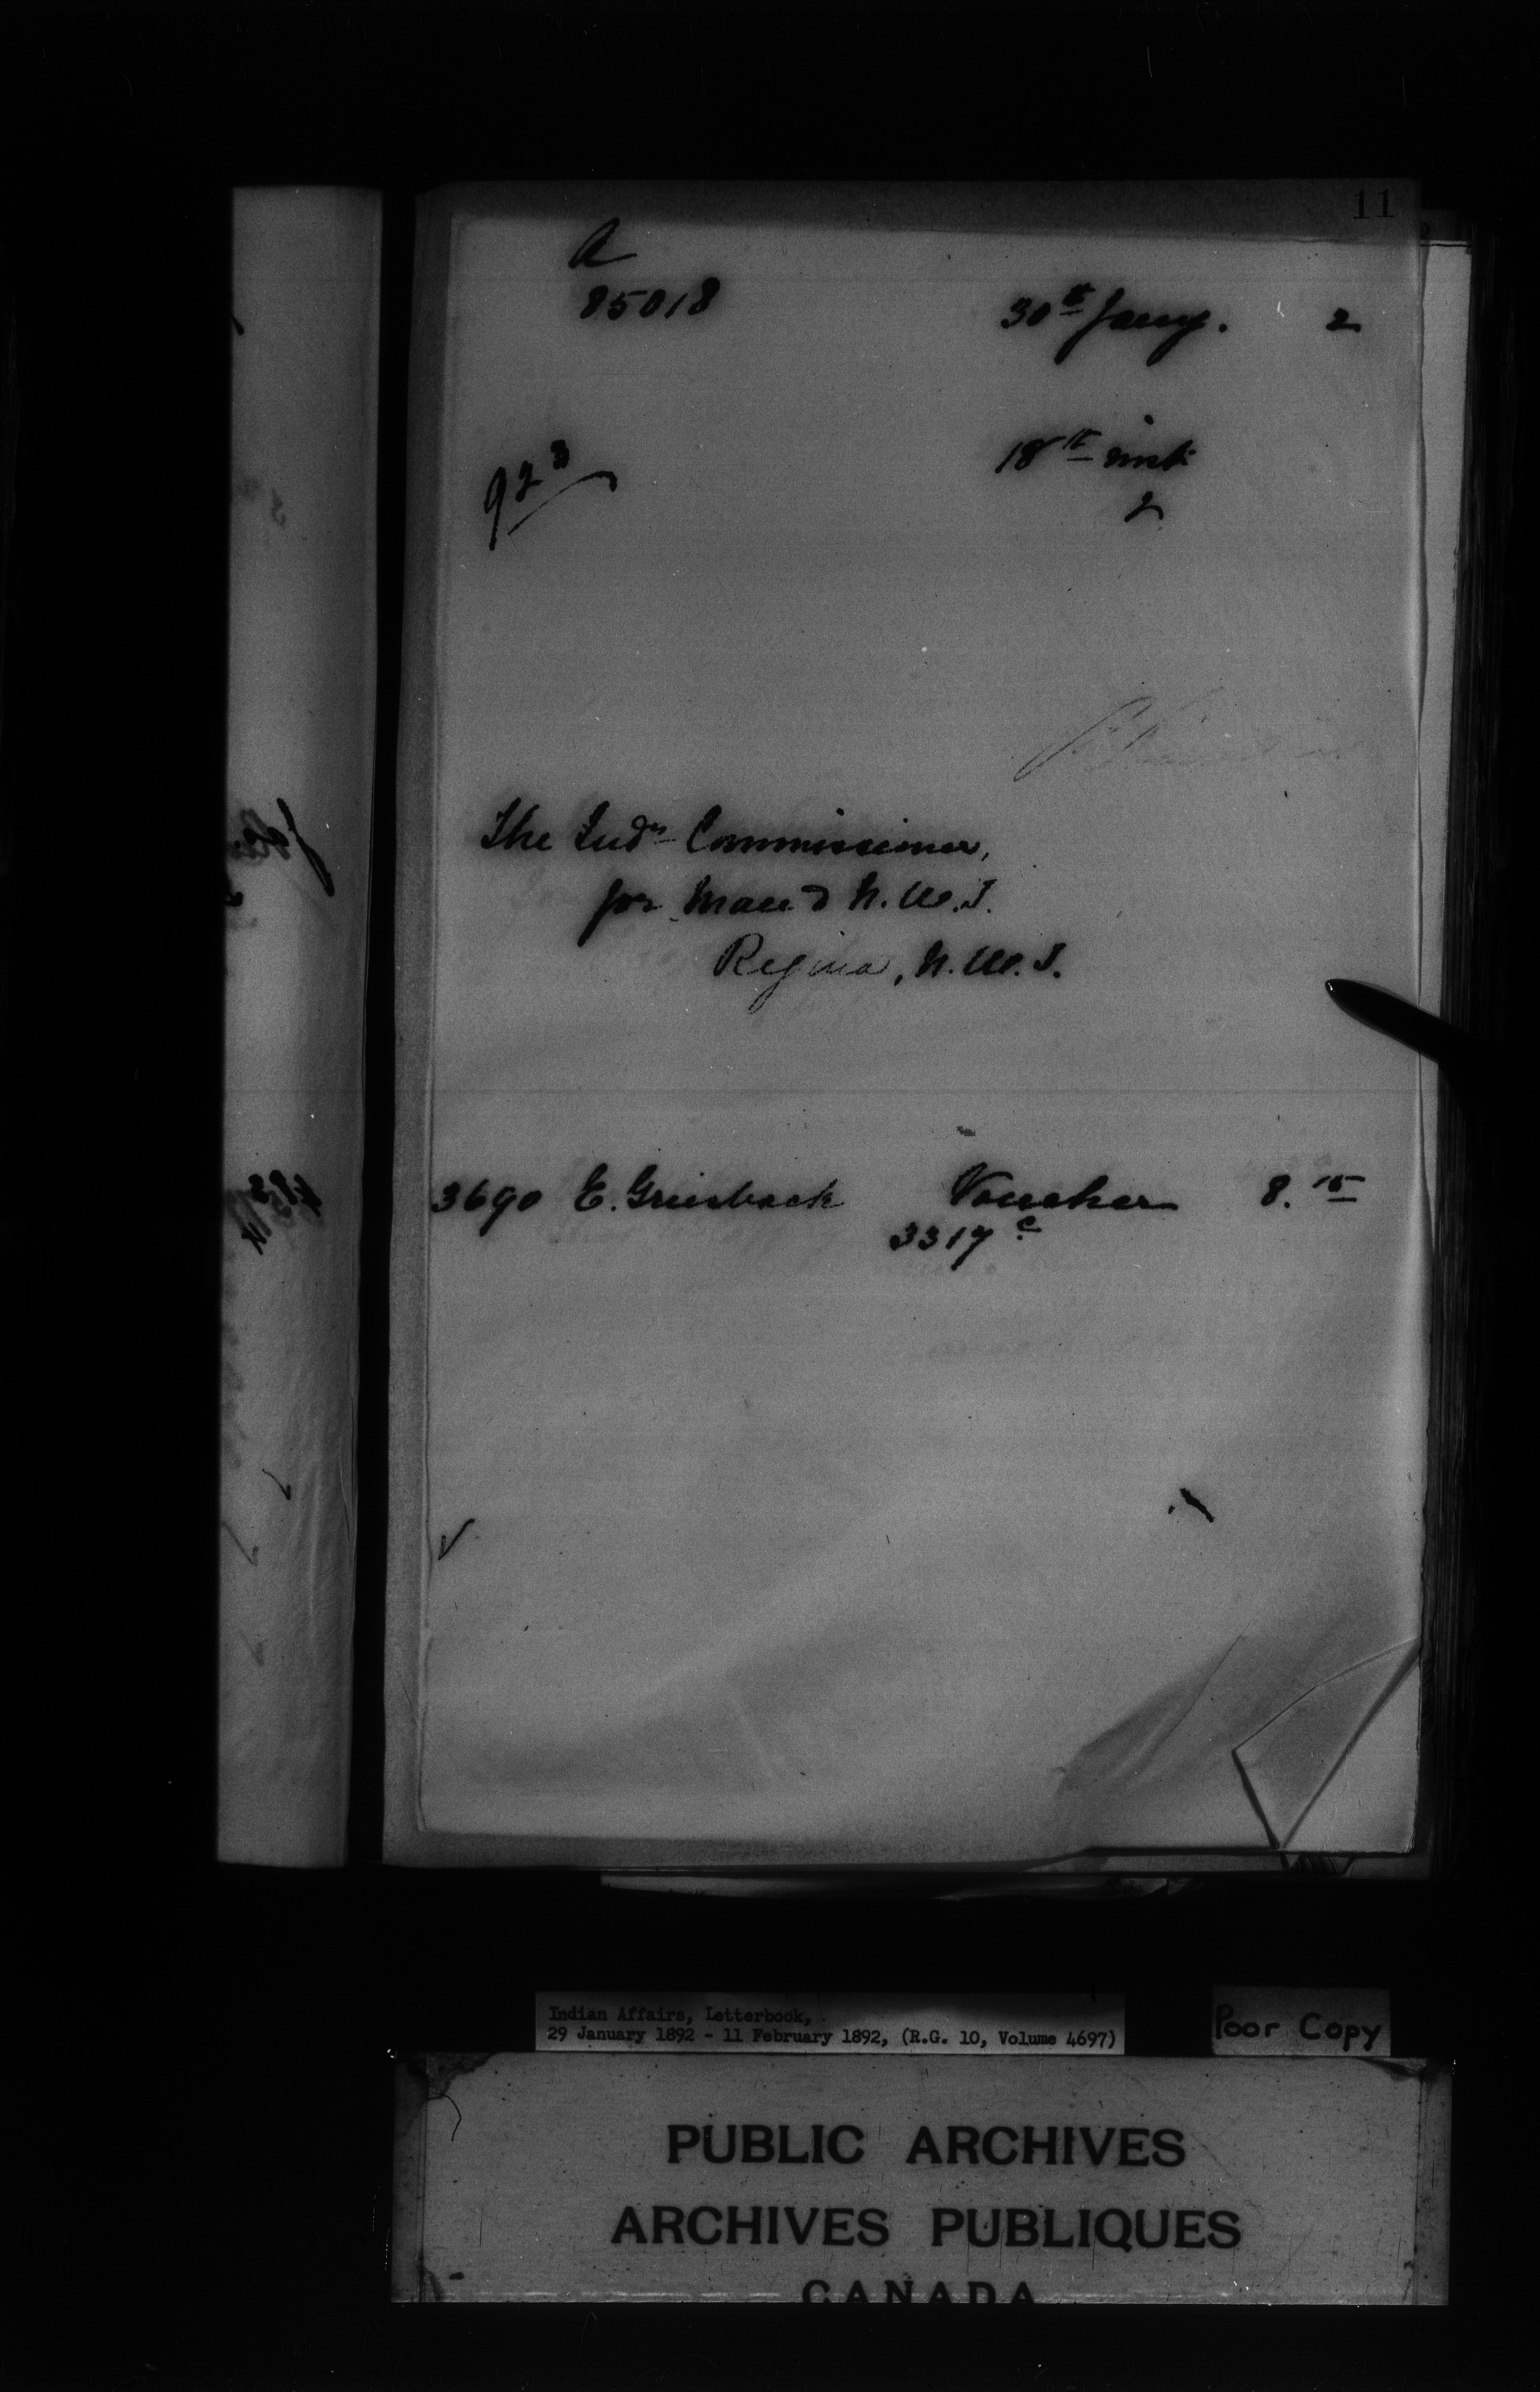 11
A
85018
30th Jany. 2
923
18th inst
2
The Indn Commissioner,
for Man & N.W.T.
Regina, N.W.T.
3690 E. Griesbach Voucher 8.15
3317 c
Indian Affairs, Letterbook,
29 January 1892 - 11 February 1892, (R.G. 10, Volume 4697)
Poor Copy
PUBLIC ARCHIVES
ARCHIVES PUBLIQUES
CANADA